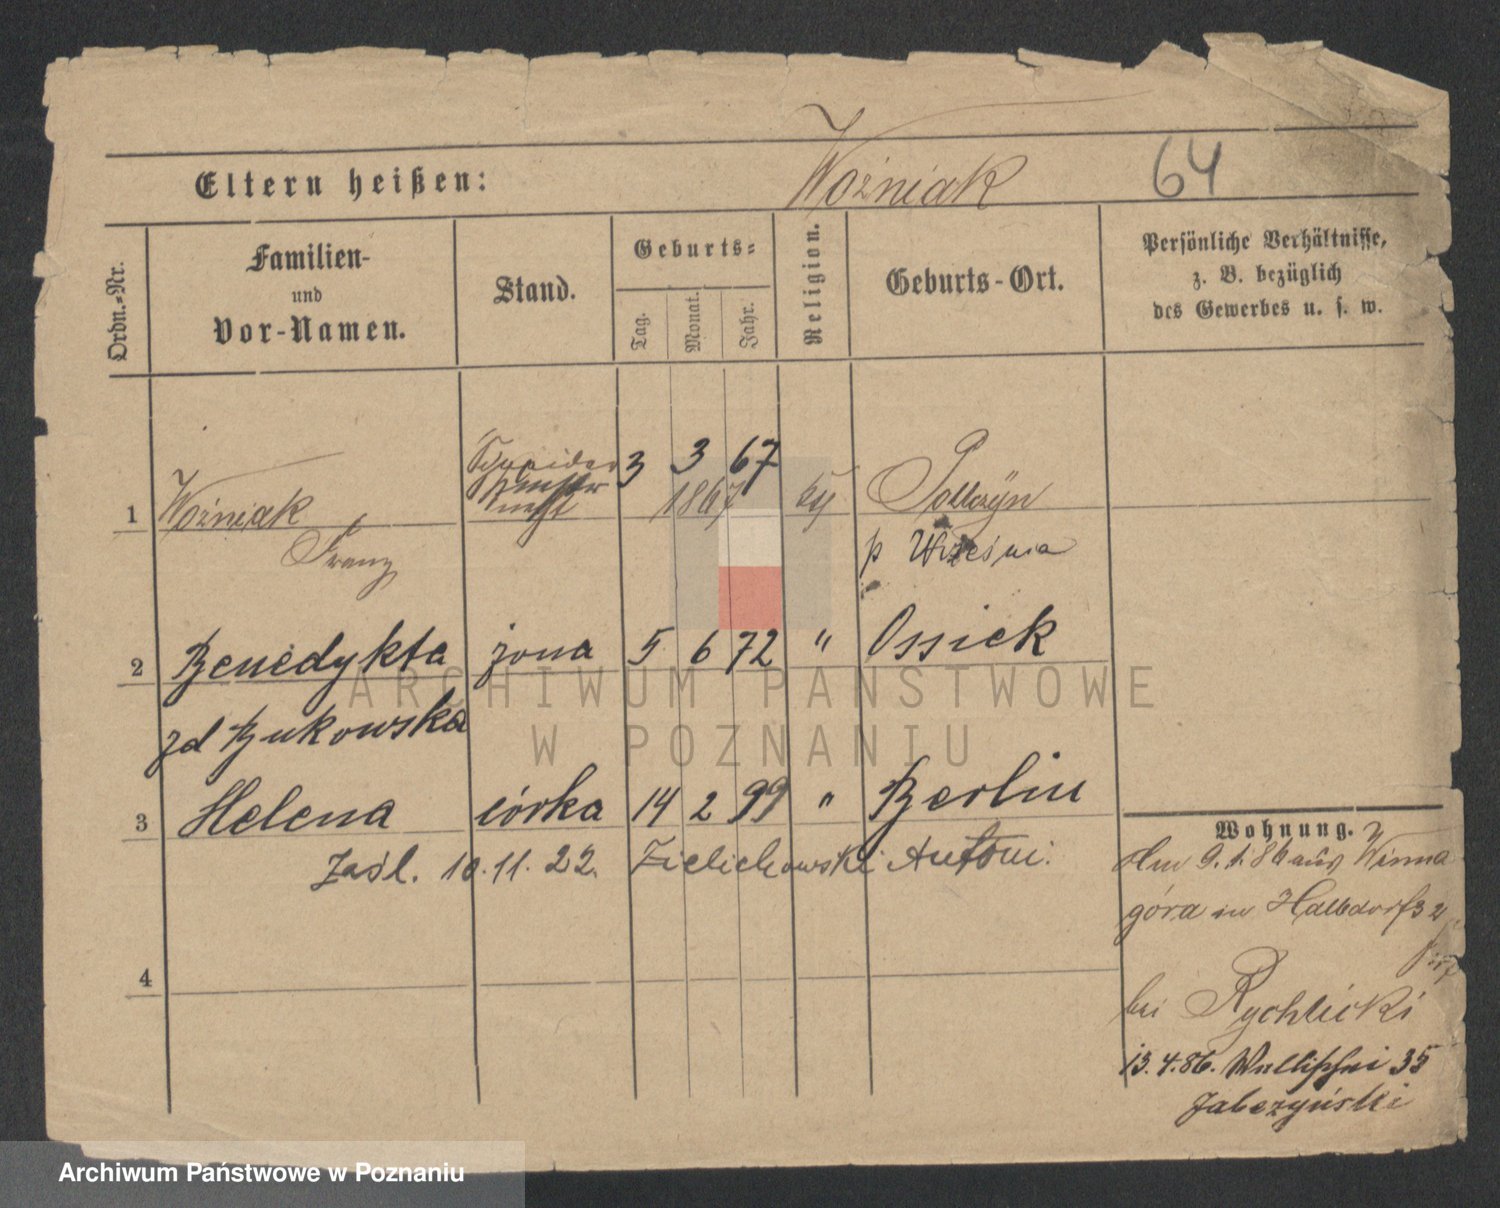 Eltern heißen: Woźniak 64
Ordn.-Nr.
Familien-
und
Vor-Namen.
Stand.
Geburts-
Tag. Monat. Jahr.
Religion.
Geburts-Ort.
Persönliche Verhältnisse,
z. B. bezüglich
des Gewerbes u. s. w.
Schneider 3 3 67
1 Woźniak 1867
Franz
p Września
2 Benedykta żona 5 6 72 " Ossiek
zd Bukowska
3 Helena córka 14 2 99 " Berlin
Zaśl. 10.11.22. Zielichowski Antoni.
4
Wohnung.
9. 1. 86 aus Winna
góra in Halbdorfs
bei Rychlicki
13.4.86. Wallischei 35
Jabczyński
ARCHIWUM PAŃSTWOWE
W POZNANIU
Archiwum Państwowe w Poznaniu